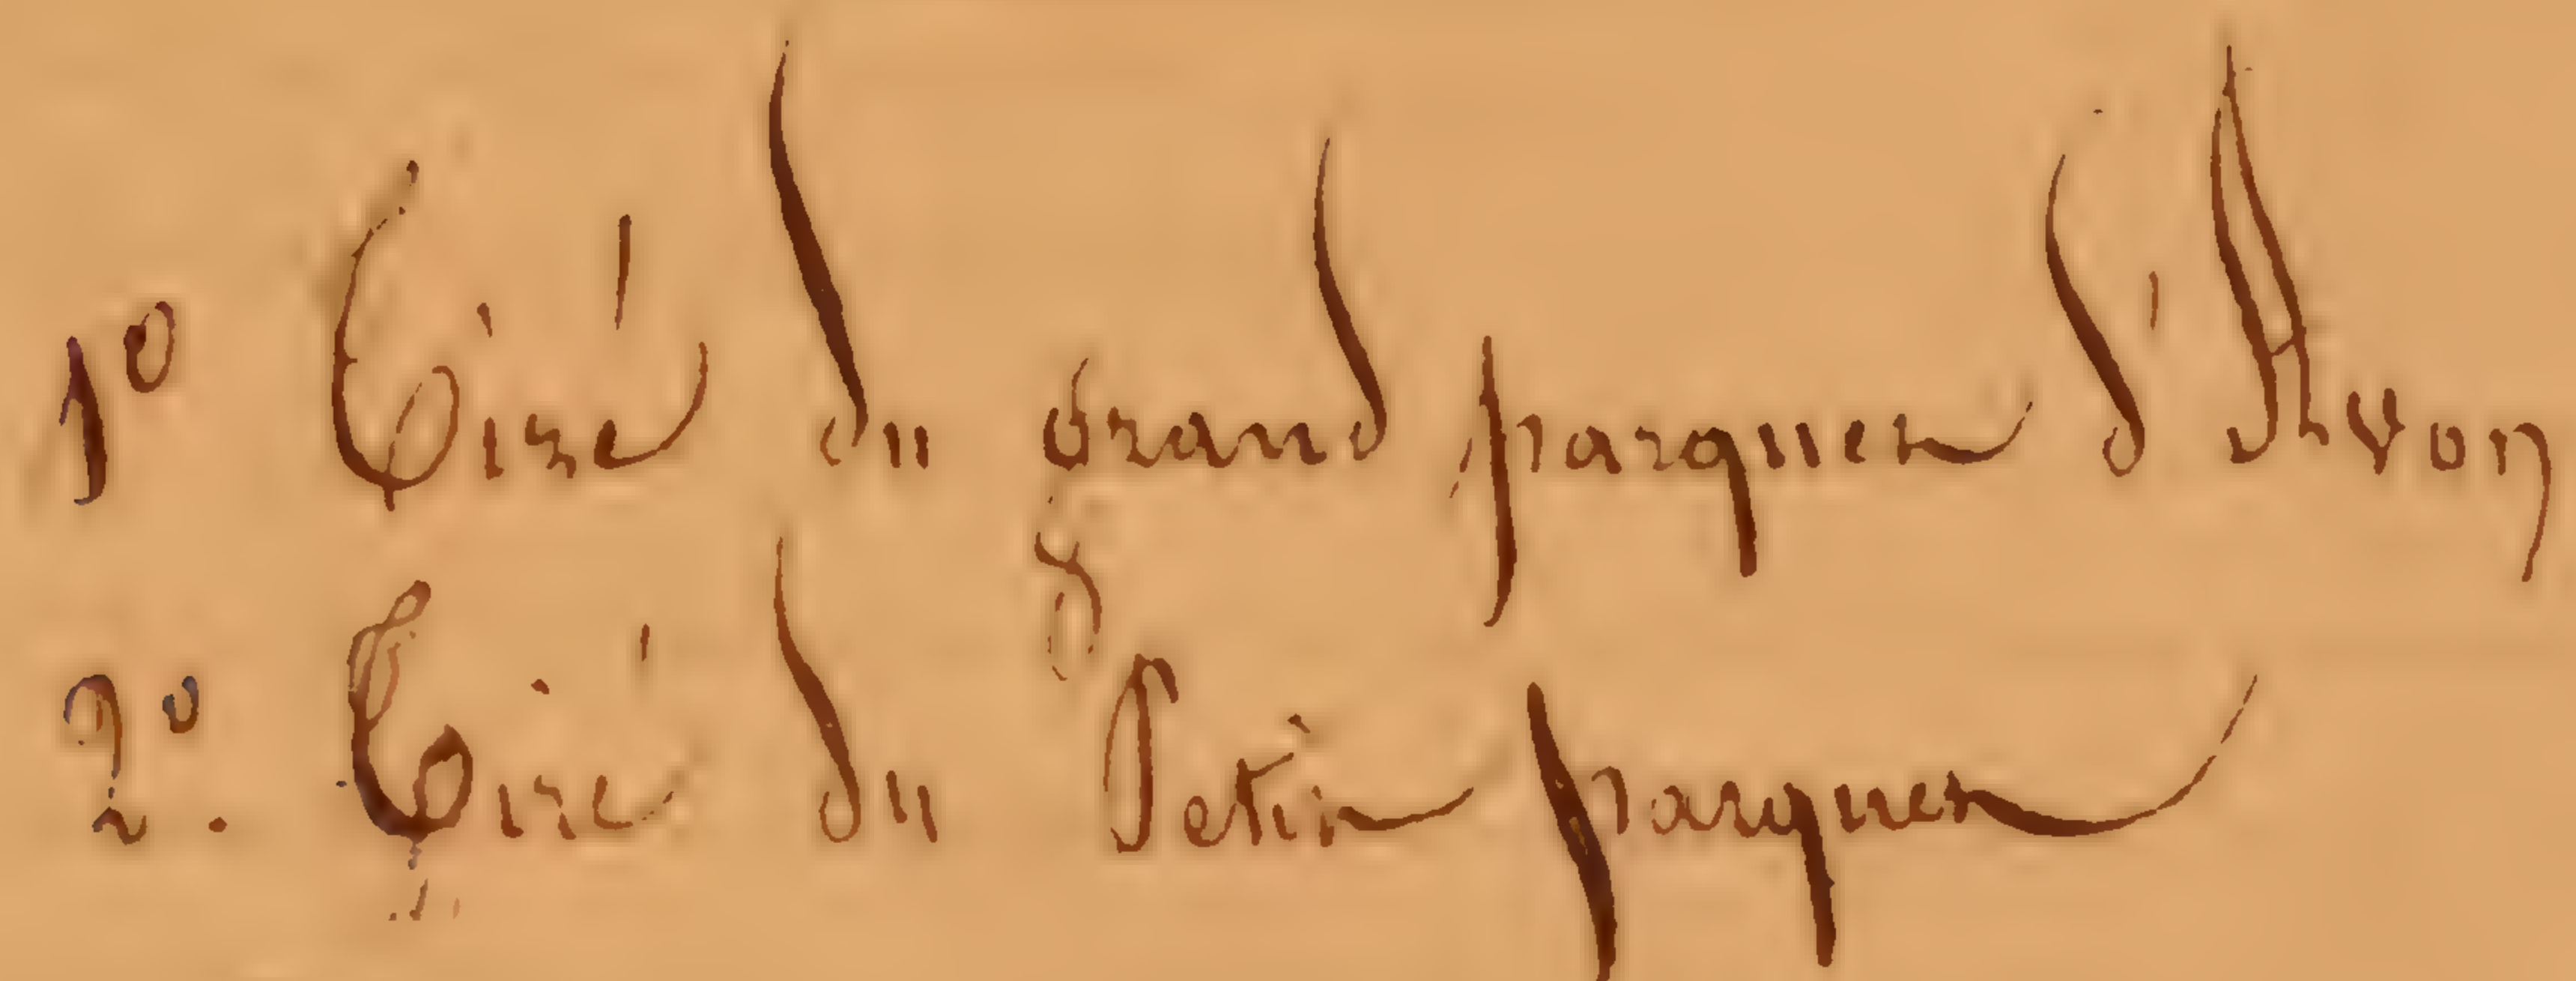 1º Tiré du grand parquet d'Avon
2º. Tiré du Petit parquet